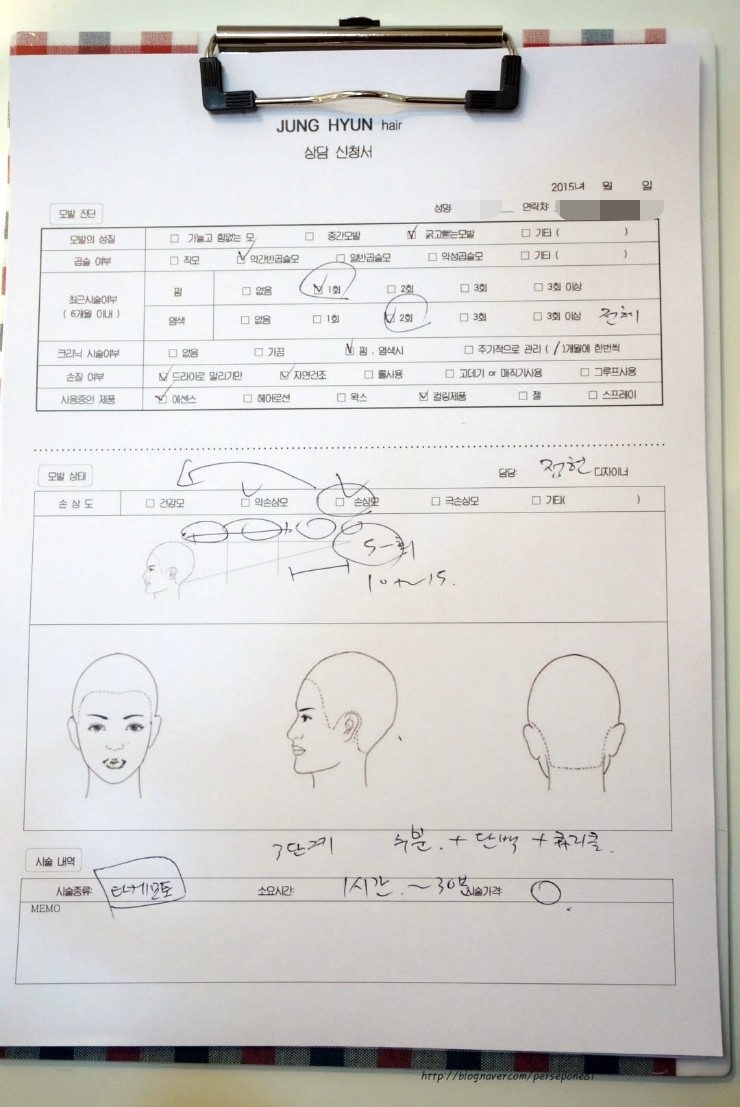 JUNG HYUN hair
상담 신청서
2015년 월 일
모발 진단 성명 연락처
모발의 성질 □ 가늘고 힘없는 모 □ 중간모발 ☑ 굵고뻗는모발 □ 기타 ( )
곱슬 여부 □ 직모 ☑ 약간반곱슬모 □ 일반곱슬모 □ 악성곱슬모 □ 기타 ( )
최근시술여부
( 6개월 이내 )
펌 □ 없음 ☑ 1회 □ 2회 □ 3회 □ 3회 이상
염색 □ 없음 □ 1회 ☑ 2회 □ 3회 □ 3회 이상 전체
크리닉 시술여부 □ 없음 □ 가끔 ☑ 펌 . 염색시 □ 주기적으로 관리 ( / )개월에 한번씩
손질 여부 ☑ 드라이로 말리기만 ☑ 자연건조 □ 롤사용 □ 고데기 or 매직기사용 □ 그루프사용
사용중인 제품 ☑ 에센스 □ 헤어로션 □ 왁스 ☑ 컬링제품 □ 젤 □ 스프레이
모발 상태 담당: 정현 디자이너
손 상 도 □ 건강모 ☑ 약손상모 ☑ 손상모 □ 극손상모 □ 기타( )
10~15.
3단계 수분. + 단백 + 큐티클.
시술 내역
시술종류: 소요시간: 1시간. ~30분 시술가격:
MEMO
http://blog.naver.com/persepone81